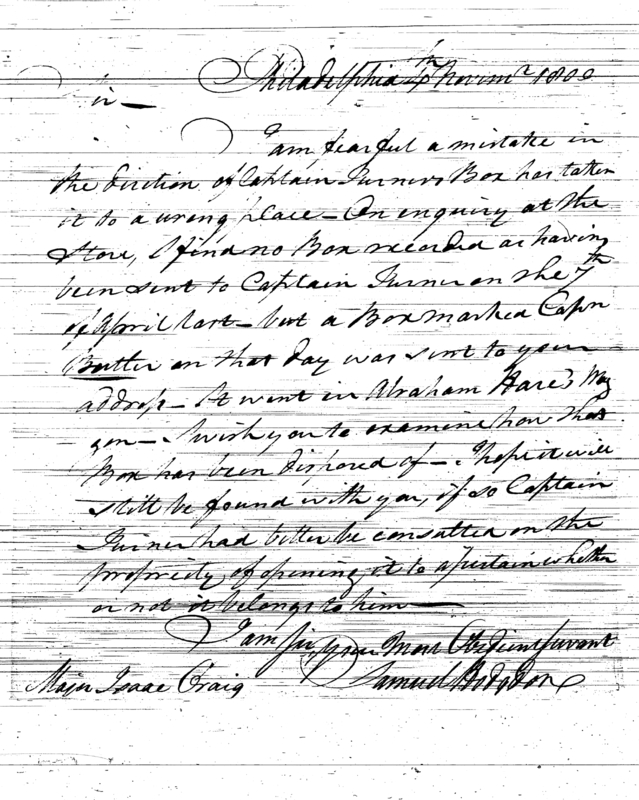 Philadelphia 4th Novemr 1800
Sir —
I am fearful a mistake in
the direction of Captain Turners Box has taken
it to a wrong place — On enquiry at the
Store, I find no Box recorded as having
been sent to Captain Turner on the 7th
of April last — but a Box marked Capn
Butler on that day was sent to your
address — It went in Abraham Hare's Wag
gon — I wish you to examine how that
Box has been disposed of — I hope it will
still be found with you, if so Captain
Turner had better be consulted on the
propriety of opening it to assertain whether
or not it belongs to him —
I am Sir your Most Obedient servant
Samuel Hodgdon
Major Isaac Craig